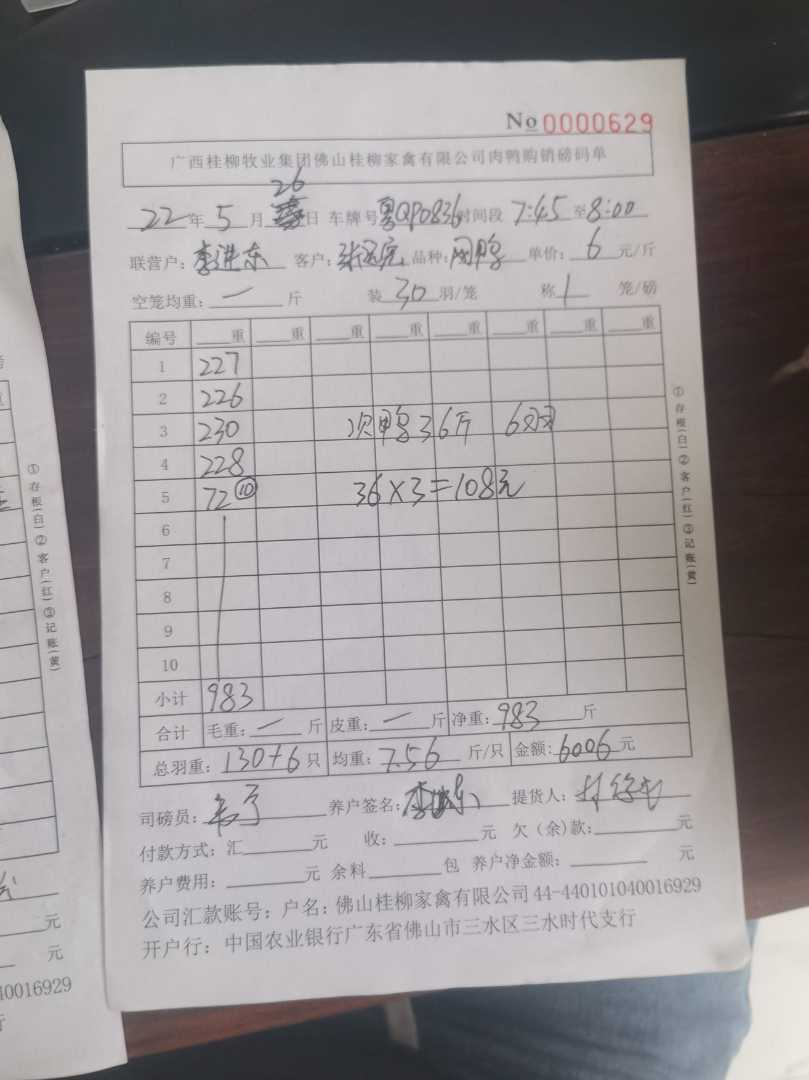 No 0000629
广西桂柳牧业集团佛山桂柳家禽有限公司肉鸭购销磅码单
22年 5 月 26 日 车牌号 粤QP0836 时间段 7:45 至 8:00
联营户: 李进东 客户: 品种: 单价: 6 元/斤
空笼均重: 一 斤 装 30 羽/笼 称 1 笼/磅
编号 重 重 重 重 重 重 重 重
1 227
2 226
3 230 次鸭36斤 6羽
4 228
5 72 ⑩ 36×3=108元
6
7
8
9
10
小计 983
合计 毛重: 一 斤 皮重: 一 斤 净重: 983 斤
总羽重: 130+6 只 均重: 7.56 斤/只 金额: 6006 元
司磅员: 养户签名: 提货人:
付款方式: 汇 元 收: 元 欠(余)款: 元
养户费用: 元 余料 包 养户净金额: 元
公司汇款账号: 户名: 佛山桂柳家禽有限公司 44-440101040016929
开户行: 中国农业银行广东省佛山市三水区三水时代支行
①存根(白)②客户(红)③记账(黄)
①存根(白)②客户(红)③记账(黄)
元
元
40016929